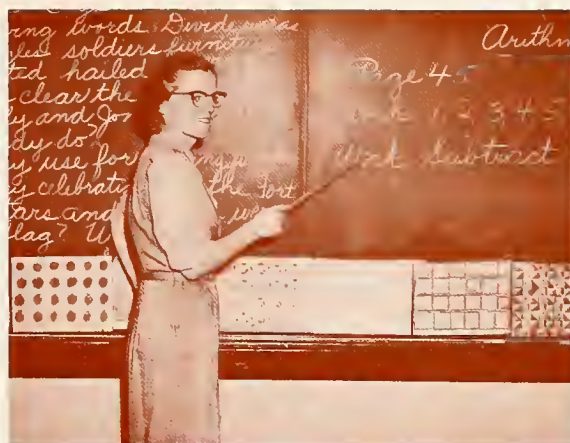 ing words. Divide
less soldiers furnitu
ted hailed
clear the
ly and Jo
dy do?
y use for
y celebrati the fort
ars and w
flag? W
Arithm
Page 45
1, 2, 3, 4, 5
Work Subtract